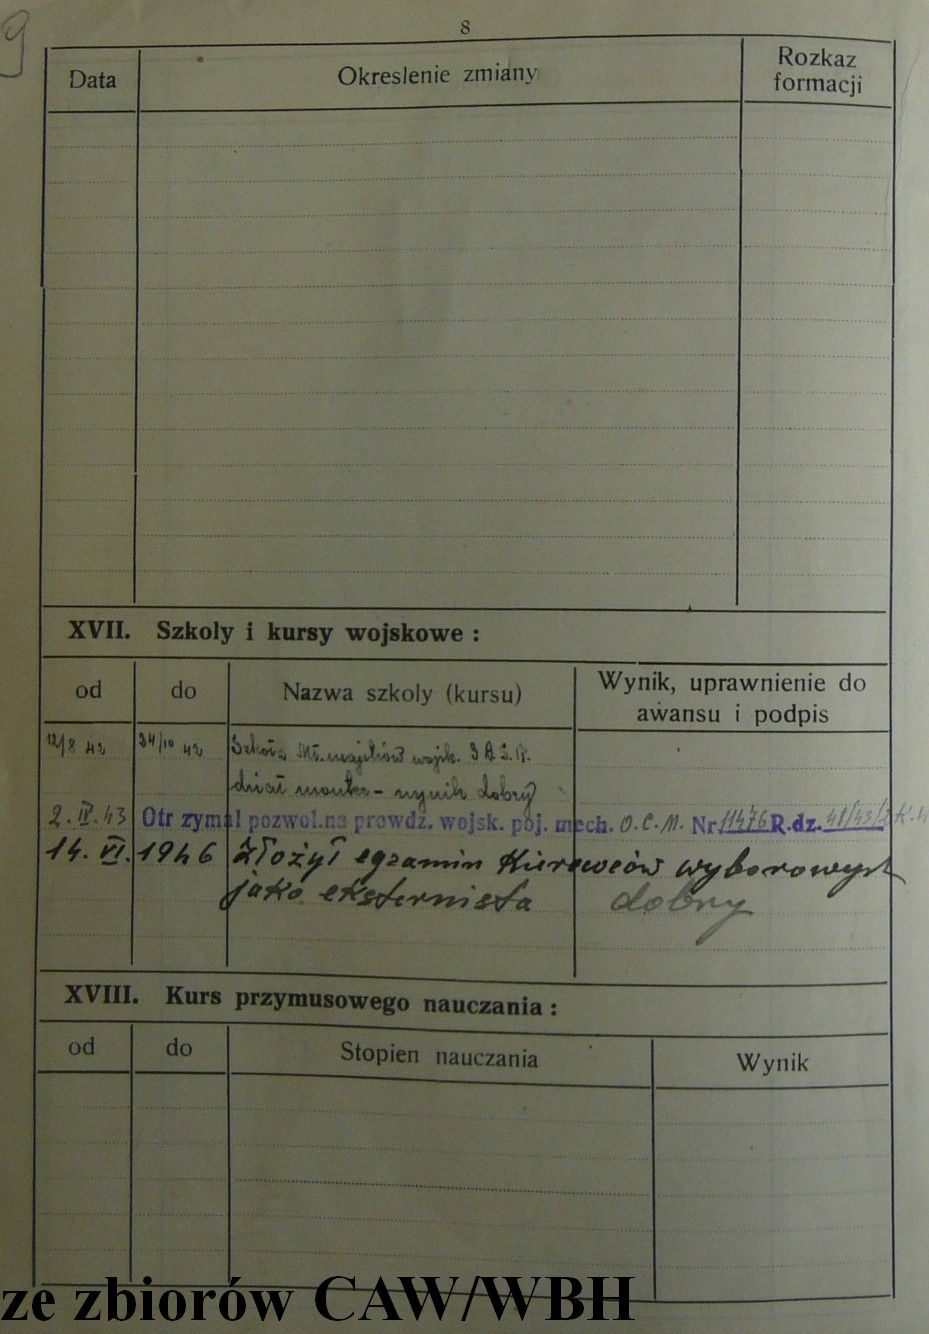 9
8
Data Okreslenie zmiany Rozkaz formacji
XVII. Szkoly i kursy wojskowe :
od do Nazwa szkoly (kursu) Wynik, uprawnienie do awansu i podpis
12/8 42 24/10 42 Szkoła Mł. majstrów wojsk.
dział monter - wynik dobry
2. IV. 43 Otrzymal pozwol. na prowdz. wojsk. poj. mech. O.C.M. Nr 11476 R.dz.
14. VI. 1946 Złożył egzamin Kierowców wyborowych
jako eksternista dobry
XVIII. Kurs przymusowego nauczania :
od do Stopien nauczania Wynik
ze zbiorów CAW/WBH